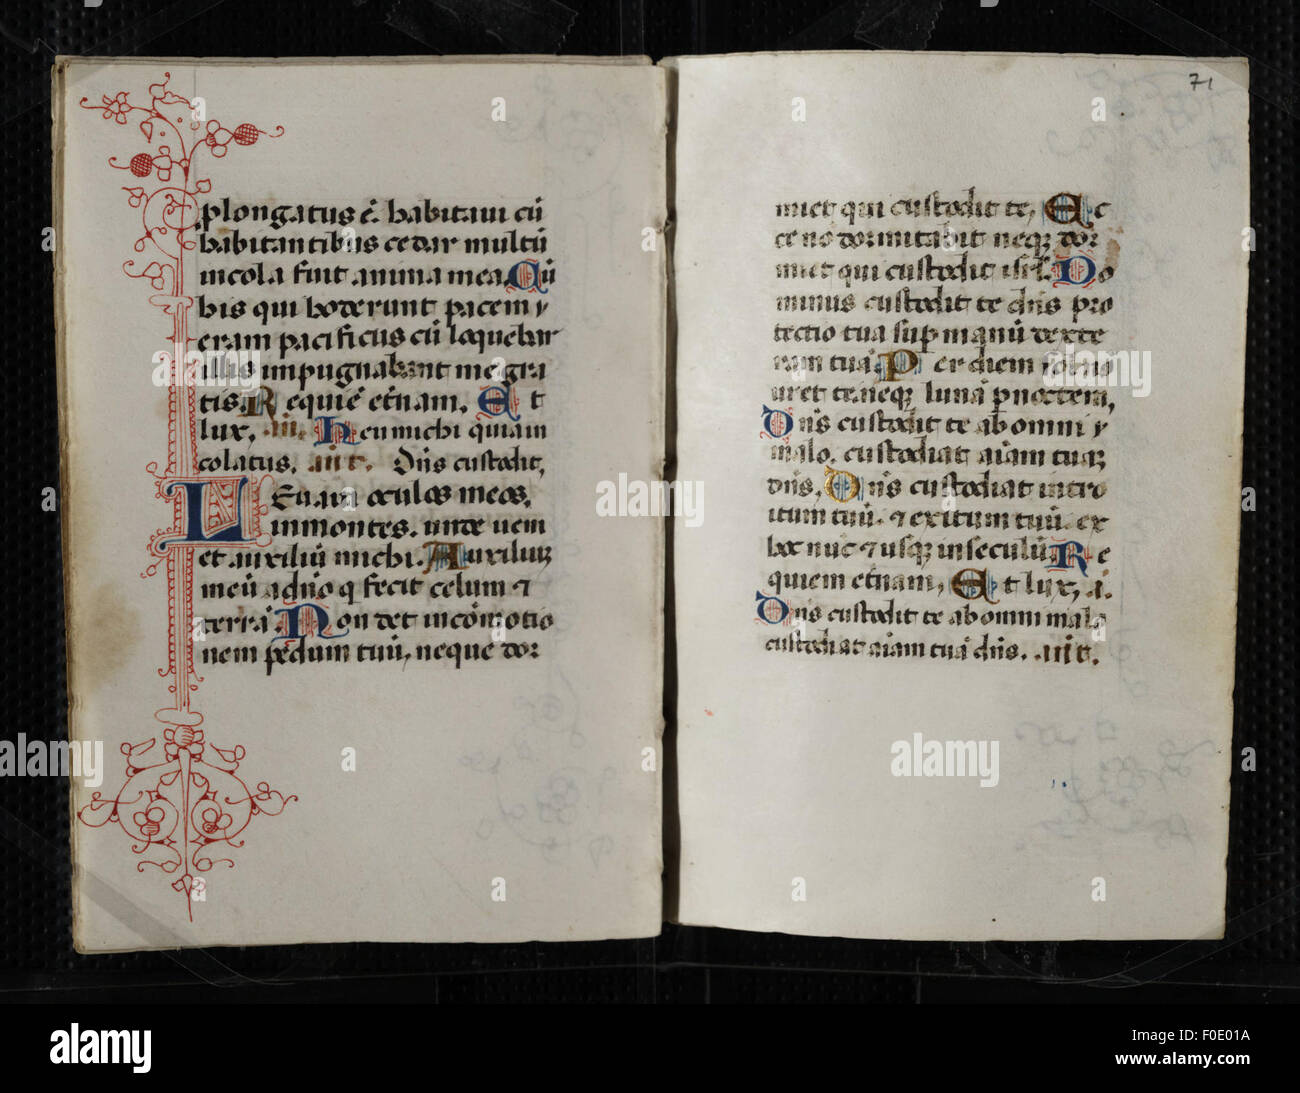 plongatus ē. habitaui cū
habitantibus cedar multū
incola fuit anima mea. Cū
his qui hoderunt pacem y
eram pacificus cū loquebar
illis impugnabant me gra
tis. Requiē etnam. Et
lux. an. Heu michi quiam
colatus. ant. Dñs custodit,
LEuaui oculos meos.
in montes. unde ueni
et auxiliū michi. Auxiliuʒ
meū a dño q fecit celum ⁊
terrā. Non det in cōmotio
nem pedum tuū, neque dor
71
miet qui custodit te, Ec
ce nō dormitabit neqʒ dor
miet qui custodit isrl. Do
minus custodit te dñs pro
tectio tua sup manū dexte
ram tuā. Per diem sol nō
uret te neqʒ luna p noctem,
Dñs custodit te ab omni y
malo. custodiat aīam tuaʒ
dñs. Dñs custodiat intro
itum tuū. ⁊ exitum tuū. ex
hoc nūc ⁊ usqʒ in seculū. Re
quiem etnam, Et lux, a.
Dñs custodit te ab omni malo
custodiat aīam tuā dñs. ant.
alamy
alamy stock photo
Image ID: F0E01A
www.alamy.com